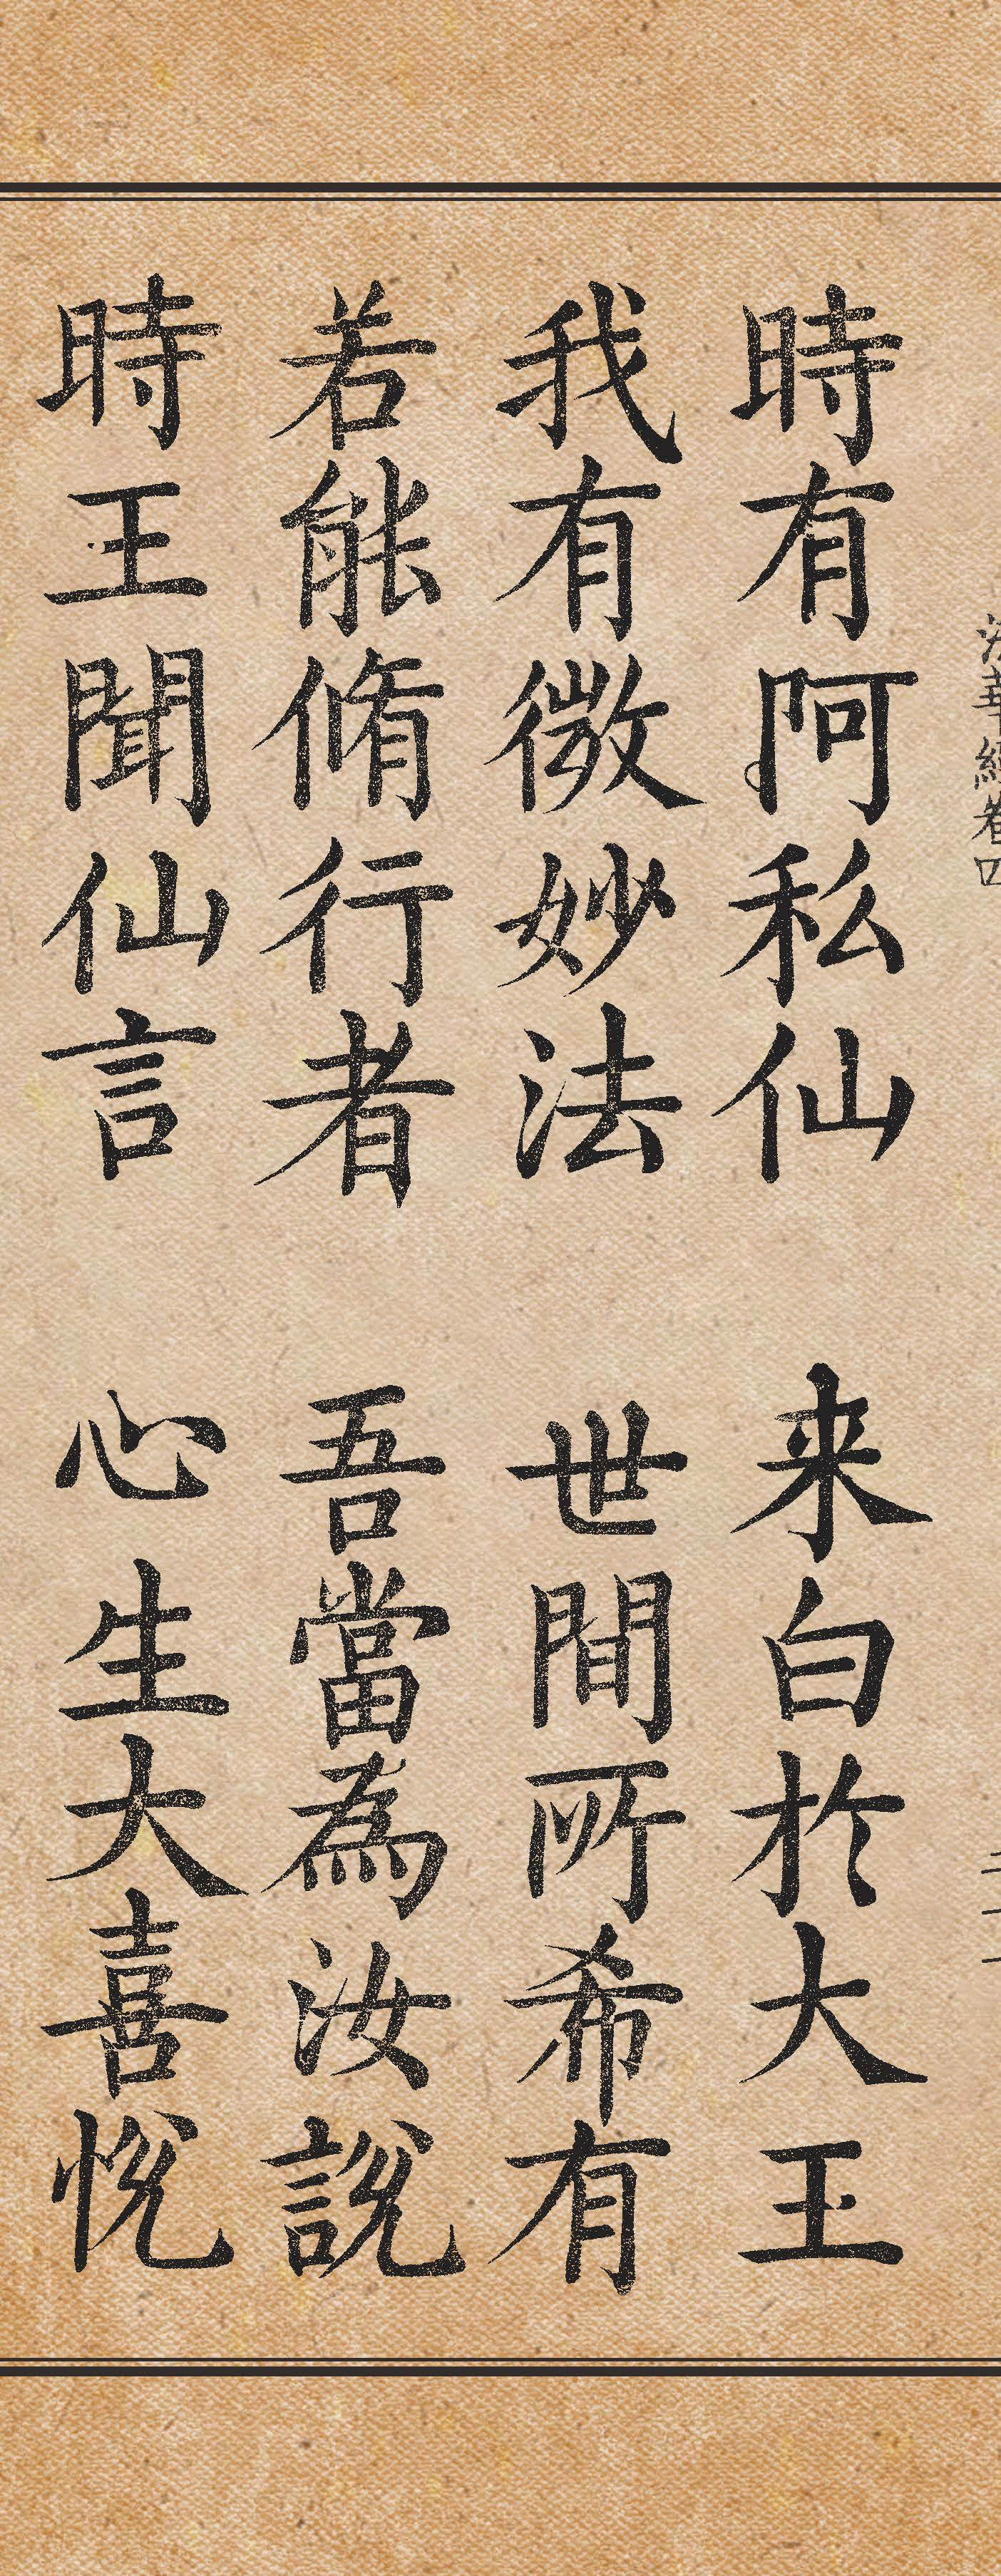 法華經卷四
二十一
時有阿私仙 来白於大王
我有微妙法 世間所希有
若能脩行者 吾當為汝說
時王聞仙言 心生大喜悅